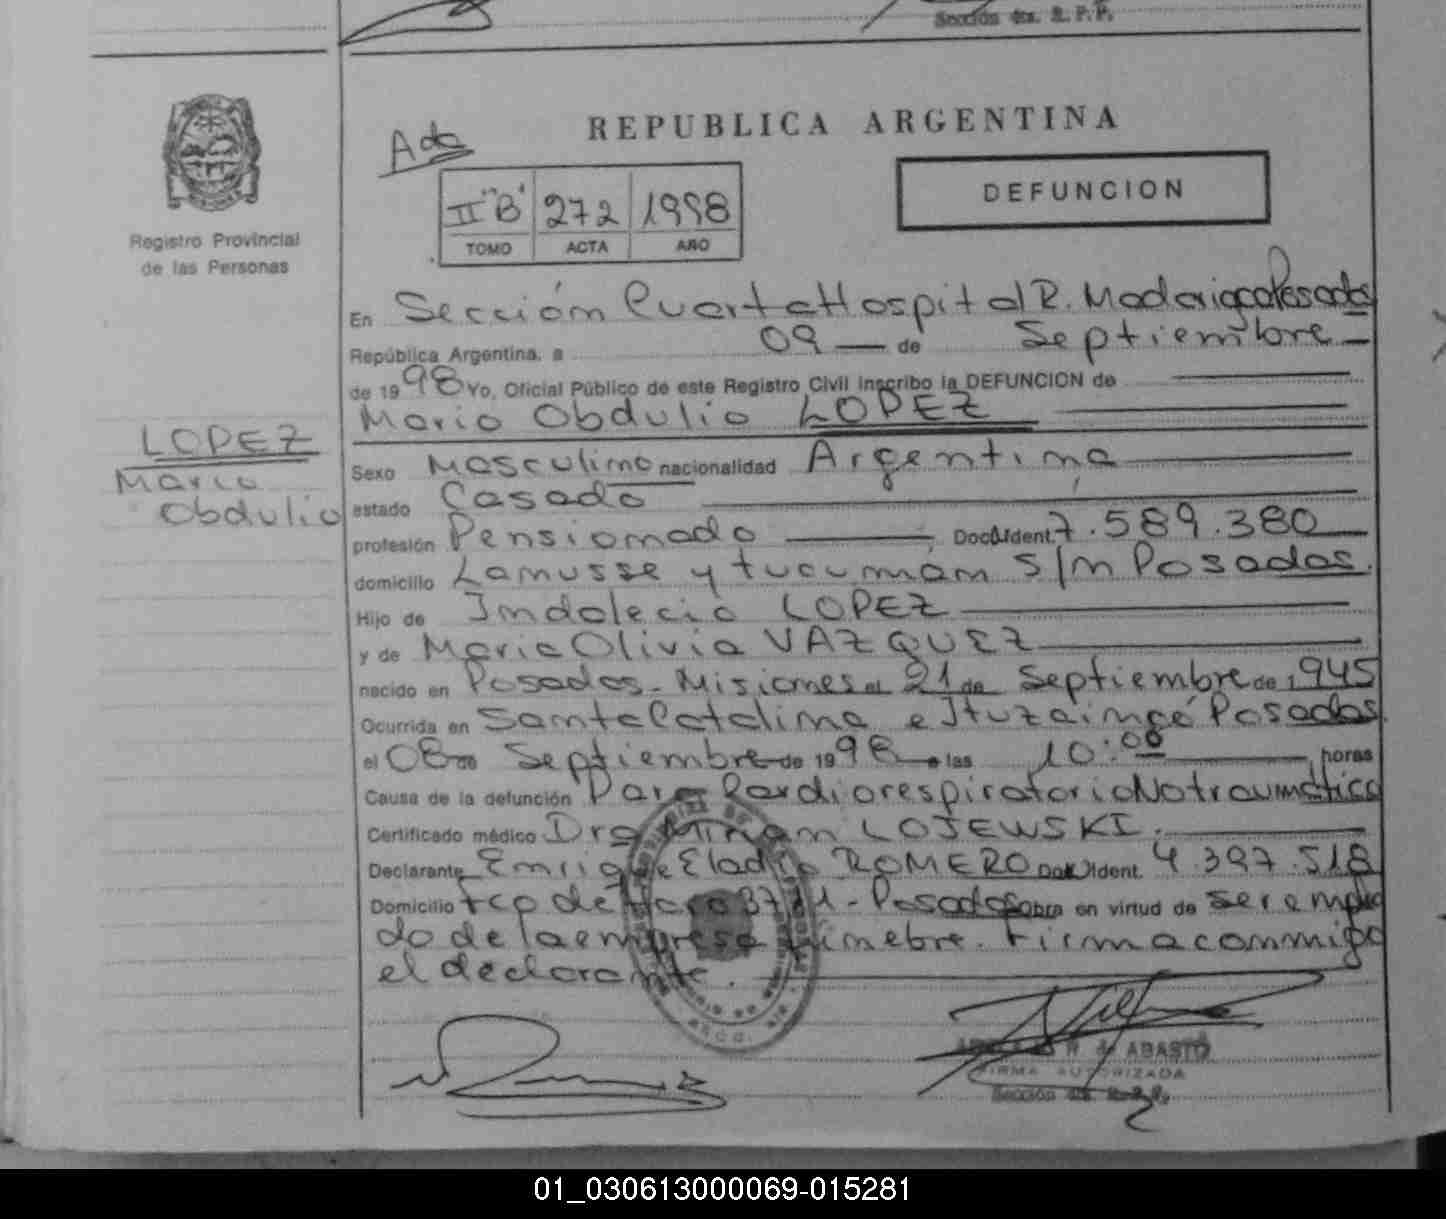 Sección 4ta. R. P. P.
REPUBLICA ARGENTINA
DEFUNCION
II "B" 272 1998
TOMO ACTA AÑO
Registro Provincial
de las Personas
En Sección Cuarta Hospital R. Madariaga Posadas
República Argentina, a 09 de Septiembre
de 1998 Yo, Oficial Público de este Registro Civil inscribo la DEFUNCION de
Mario Obdulio LOPEZ
LOPEZ
Mario
Obdulio
Sexo Masculino nacionalidad Argentina
estado Casado
profesión Pensionado Doc. Ident. 7.589.380
domicilio Lanusse y tucumán S/n Posadas.
Hijo de Indalecio LOPEZ
y de Maria Olivia VAZQUEZ
nacido en Posadas - Misiones el 21 de Septiembre de 1.945
Ocurrida en Santa Catalina e Ituzaingó Posadas.
el 08 de Septiembre de 1998 a las 10:00 horas
Causa de la defunción Paro Cardiorespiratorio No traumático
Certificado médico Dra Miriam LOJEWSKI.
Declarante Enrique Eladio ROMERO Doc. Ident. 4.397.518
Domicilio - Posadas obra en virtud de ser emplea
do de la empresa fúnebre. Firma conmigo
el declarante.
R. de ABASTO
FIRMA AUTORIZADA
Sección 4ta. R. P. P.
01_030613000069-015281